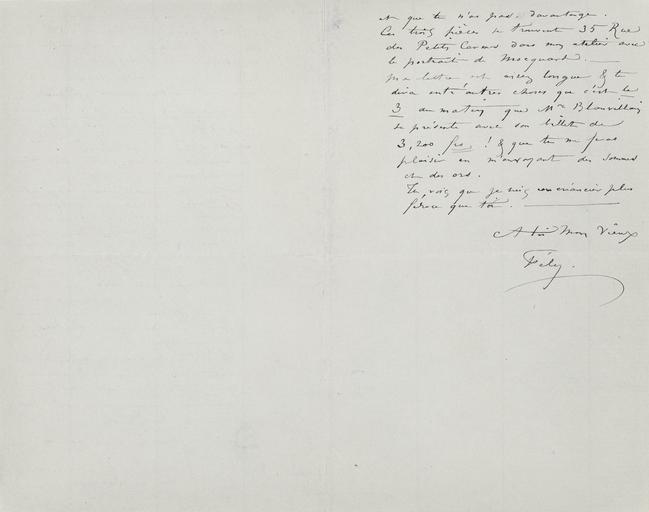 et que tu n'as pas davantage.
Ces trois pièces se trouvent 35 Rue
des Petits Carmes dans mon atelier avec
le portrait de Mocquard.
Ma lettre est assez longue & te
dira entr'autres choses que c'est le
3 au matin que Mr Blouvillain
se présente avec son billet de
3,200 frs. ! & que tu me feras
plaisir en m'envoyant des sommes
et des ors.
Tu vois que je suis un créancier plus
féroce que toi.
A toi Mon Vieux
Fély.